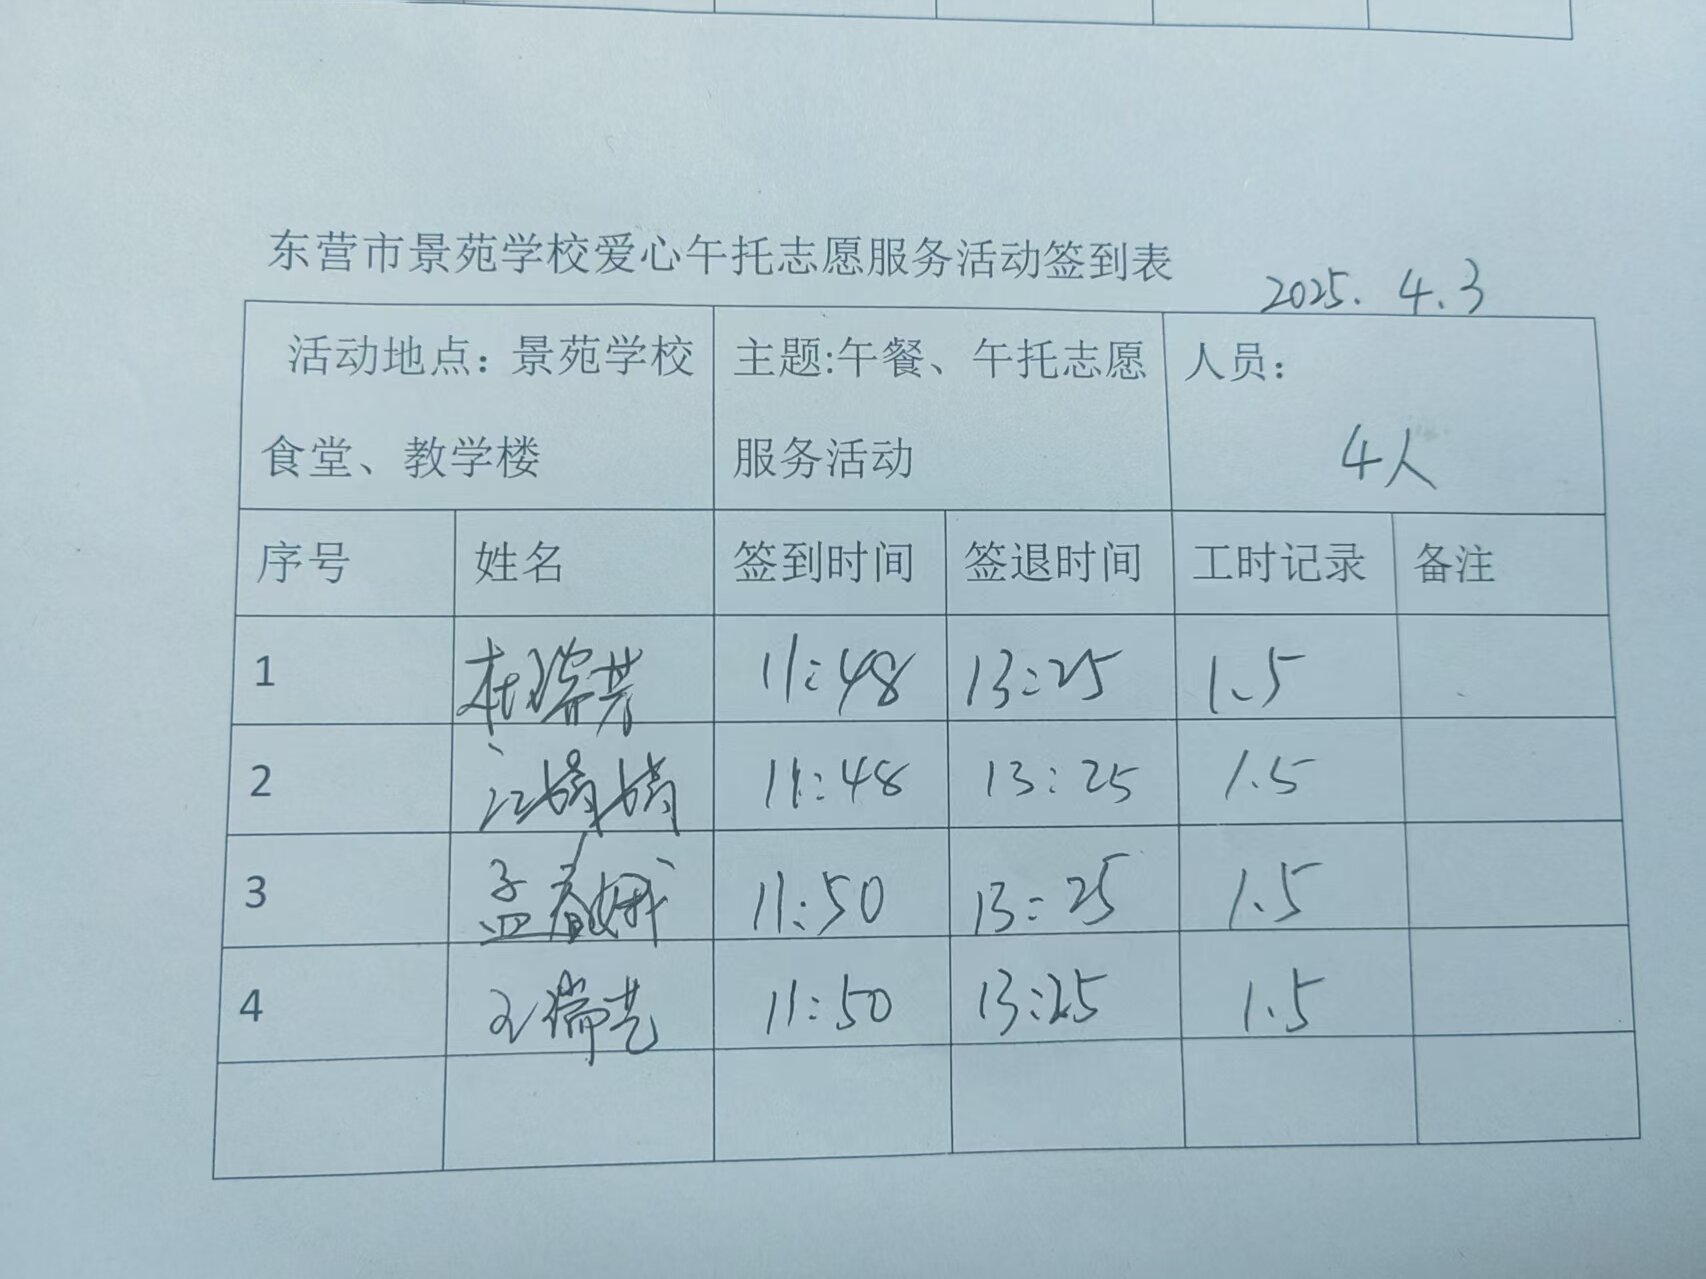 东营市景苑学校爱心午托志愿服务活动签到表
2025.4.3
活动地点：景苑学校食堂、教学楼 主题:午餐、午托志愿服务活动 人员：4人
序号 姓名 签到时间 签退时间 工时记录 备注
1 杜瑞芳 11:48 13:25 1.5
2 江婧婧 11:48 13:25 1.5
3 孟春娥 11:50 13:25 1.5
4 王瑞芝 11:50 13:25 1.5